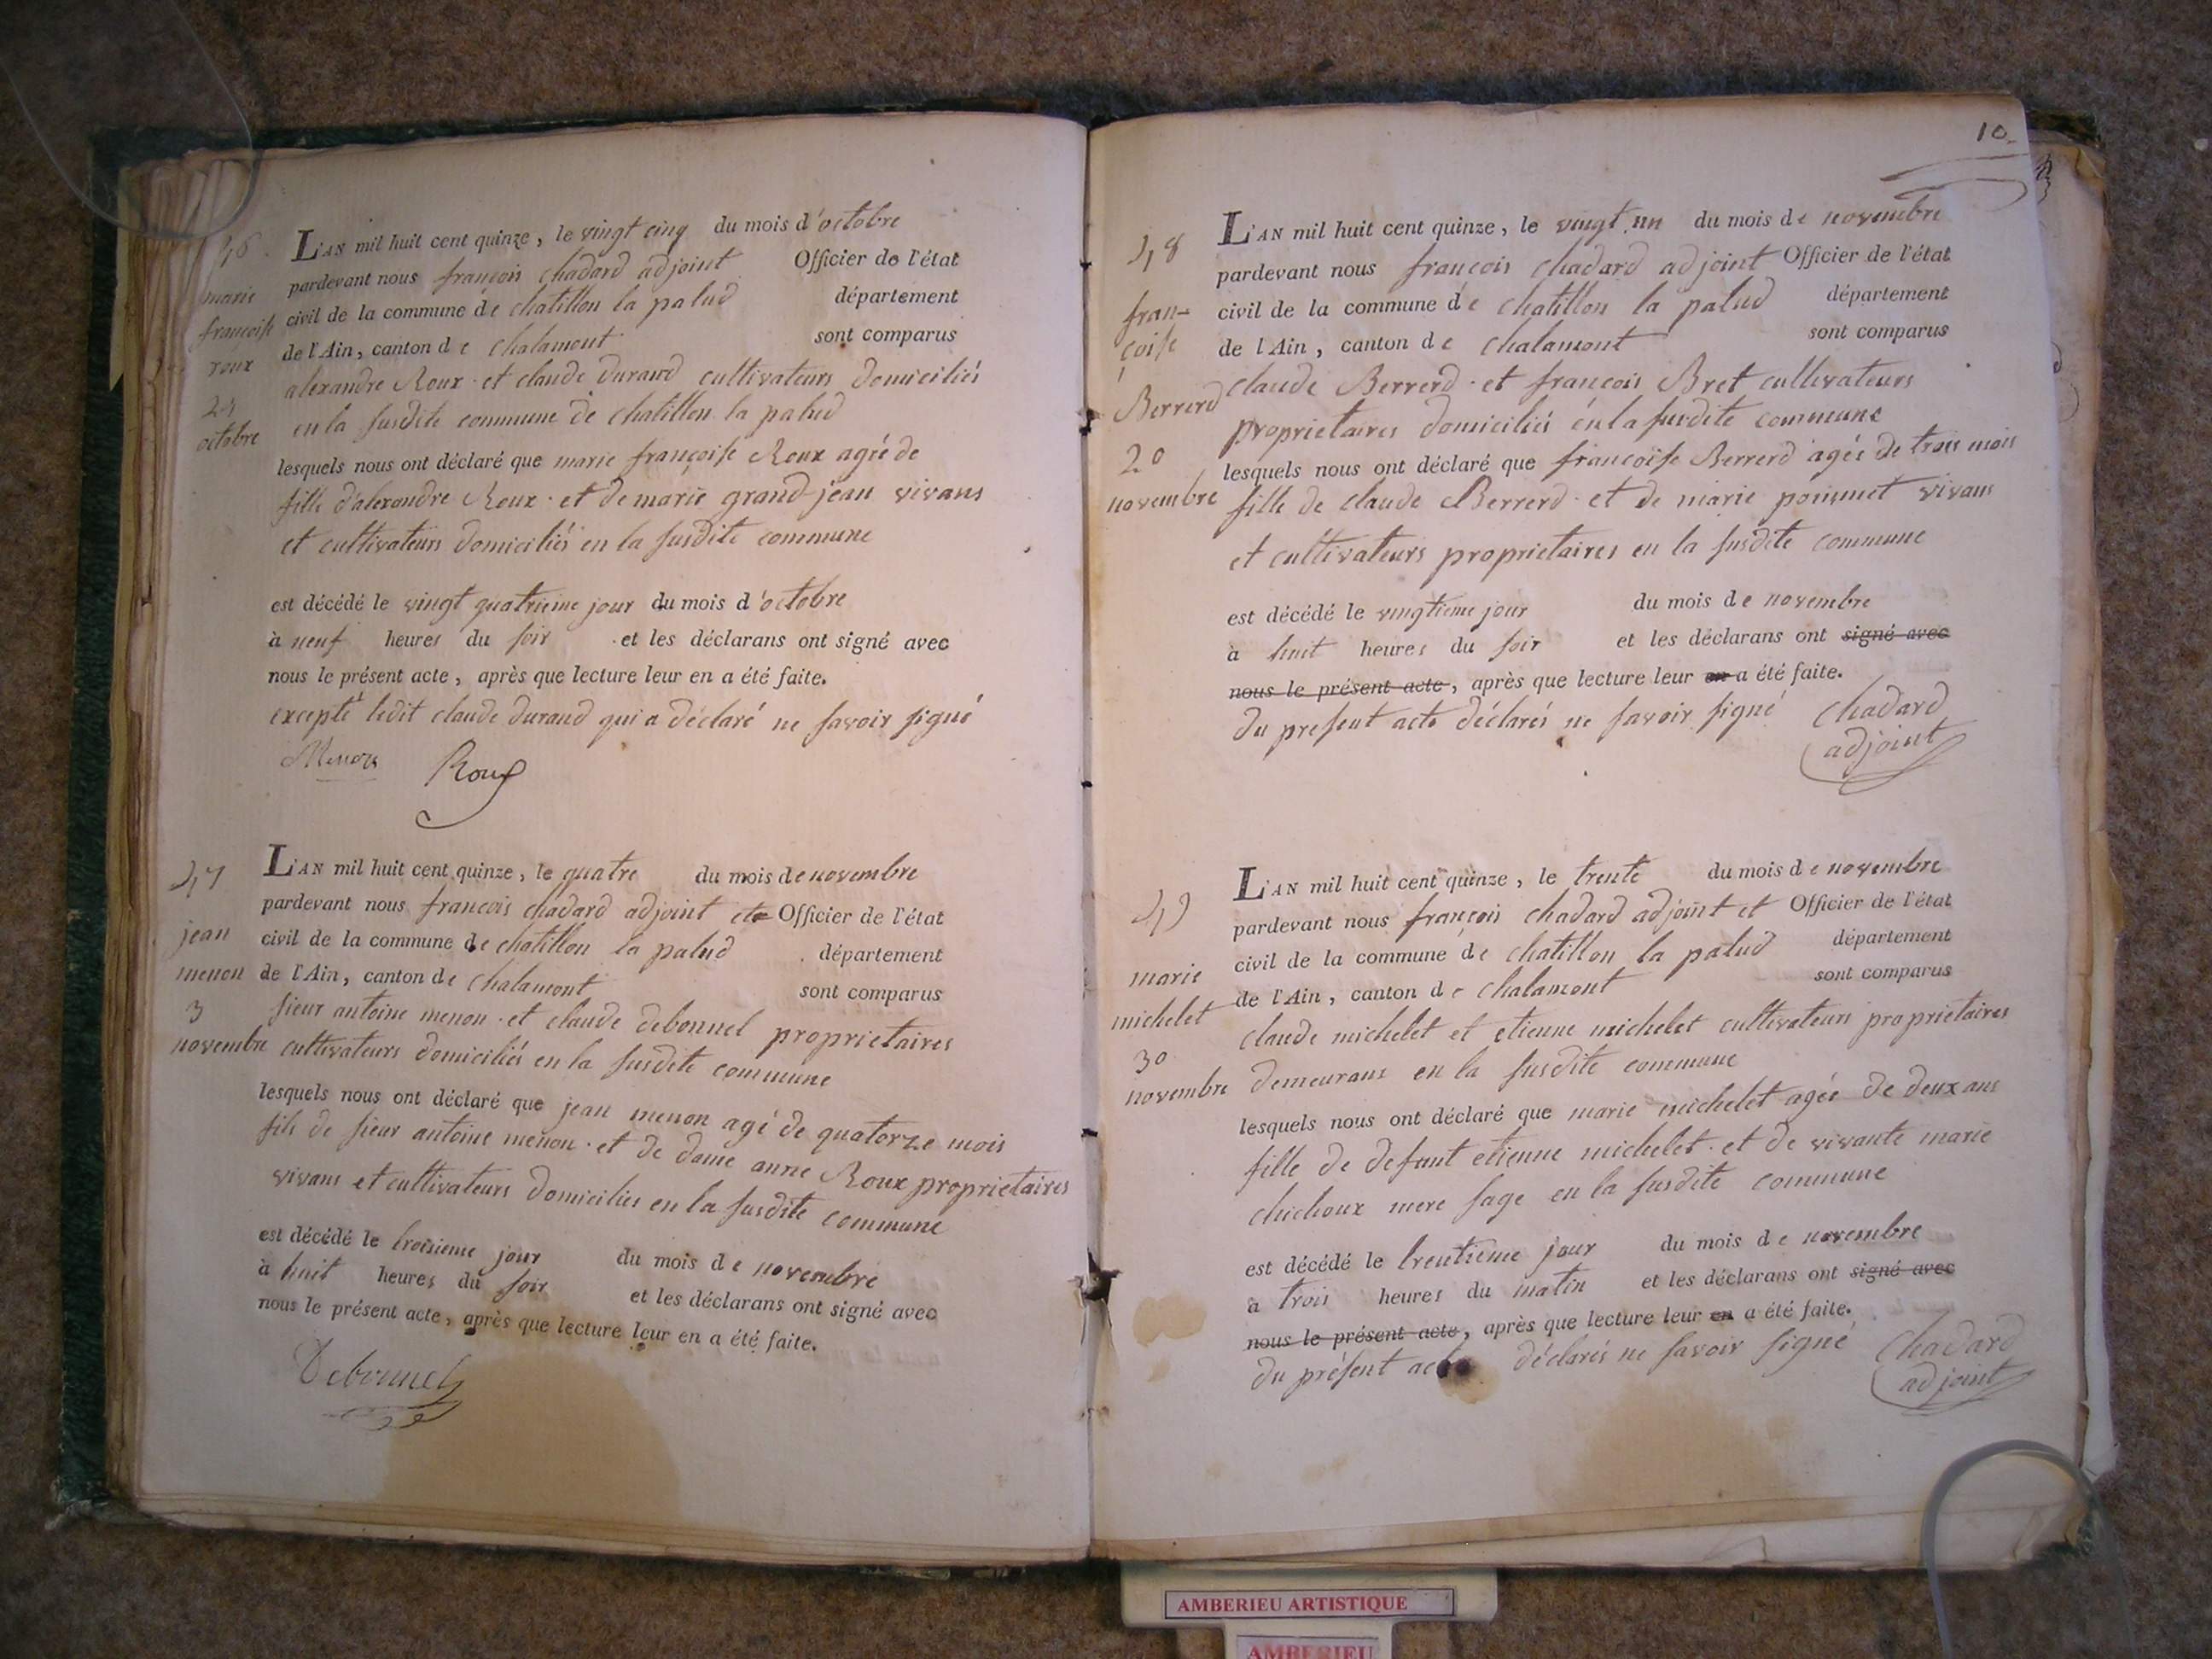 46
marie
françoise
roux
24
octobre
L'AN mil huit cent quinze, le vingt cinq du mois d'octobre
pardevant nous françois chadard adjoint Officier de l'état
civil de la commune de chatillon la palud département
de l'Ain, canton de Chalamont sont comparus
alexandre Roux et claude durand cultivateurs domiciliés
en la susdite commune de chatillon la palud
lesquels nous ont déclaré que marie françoise Roux agée de
fille d'alexandre Roux et de marie grand jean vivans
et cultivateurs domiciliés en la susdite commune
est décédé le vingt quatrieme jour du mois d'octobre
à neuf heures du soir et les déclarans ont signé avec
nous le présent acte, après que lecture leur en a été faite.
excepté ledit claude durand qui a déclaré ne savoir signé
Menon Roux
47
jean
menon
3
novembre
L'AN mil huit cent quinze, le quatre du mois de novembre
pardevant nous francois chadard adjoint et Officier de l'état
civil de la commune de chatillon la palud département
de l'Ain, canton de Chalamont sont comparus
sieur antoine menon et claude debonnel proprietaires
cultivateurs domiciliés en la susdite commune
lesquels nous ont déclaré que jean menon agé de quatorze mois
fils de sieur antoine menon et de dame anne Roux proprietaires
vivans et cultivateurs domicilies en la susdite commune
est décédé le troisieme jour du mois de novembre
à huit heures du soir et les déclarans ont signé avec
nous le présent acte, après que lecture leur en a été faite.
Debonnel
10
48
fran-
çoise
Berrerd
20
novembre
L'AN mil huit cent quinze, le vingt un du mois de novembre
pardevant nous françois chadard adjoint Officier de l'état
civil de la commune de chatillon la palud département
de l'Ain, canton de Chalamont sont comparus
claude Berrerd et françois Bret cultivateurs
proprietaires domiciliés en la susdite commune
lesquels nous ont déclaré que françoise Berrerd agée de trois mois
fille de claude Berrerd et de marie vivans
et cultivateurs proprietaires en la susdite commune
est décédé le vingtieme jour du mois de novembre
à huit heures du soir et les déclarans ont signé avec
nous le présent acte, après que lecture leur en a été faite.
du present acte déclarés ne savoir signé Chadard
adjoint
49
marie
michelet
30
novembre
L'AN mil huit cent quinze, le trente du mois de novembre
pardevant nous françois chadard adjoint et Officier de l'état
civil de la commune de chatillon la palud département
de l'Ain, canton de Chalamont sont comparus
claude michelet et etienne michelet cultivateurs proprietaires
demeurans en la susdite commune
lesquels nous ont déclaré que marie michelet agée de deux ans
fille de defunt etienne michelet et de vivante marie
chichoux mere sage en la susdite commune
est décédé le trentieme jour du mois de novembre
à trois heures du matin et les déclarans ont signé avec
nous le présent acte, après que lecture leur en a été faite.
du présent acte déclarés ne savoir signé Chadard
adjoint
AMBERIEU ARTISTIQUE
AMBERIEU